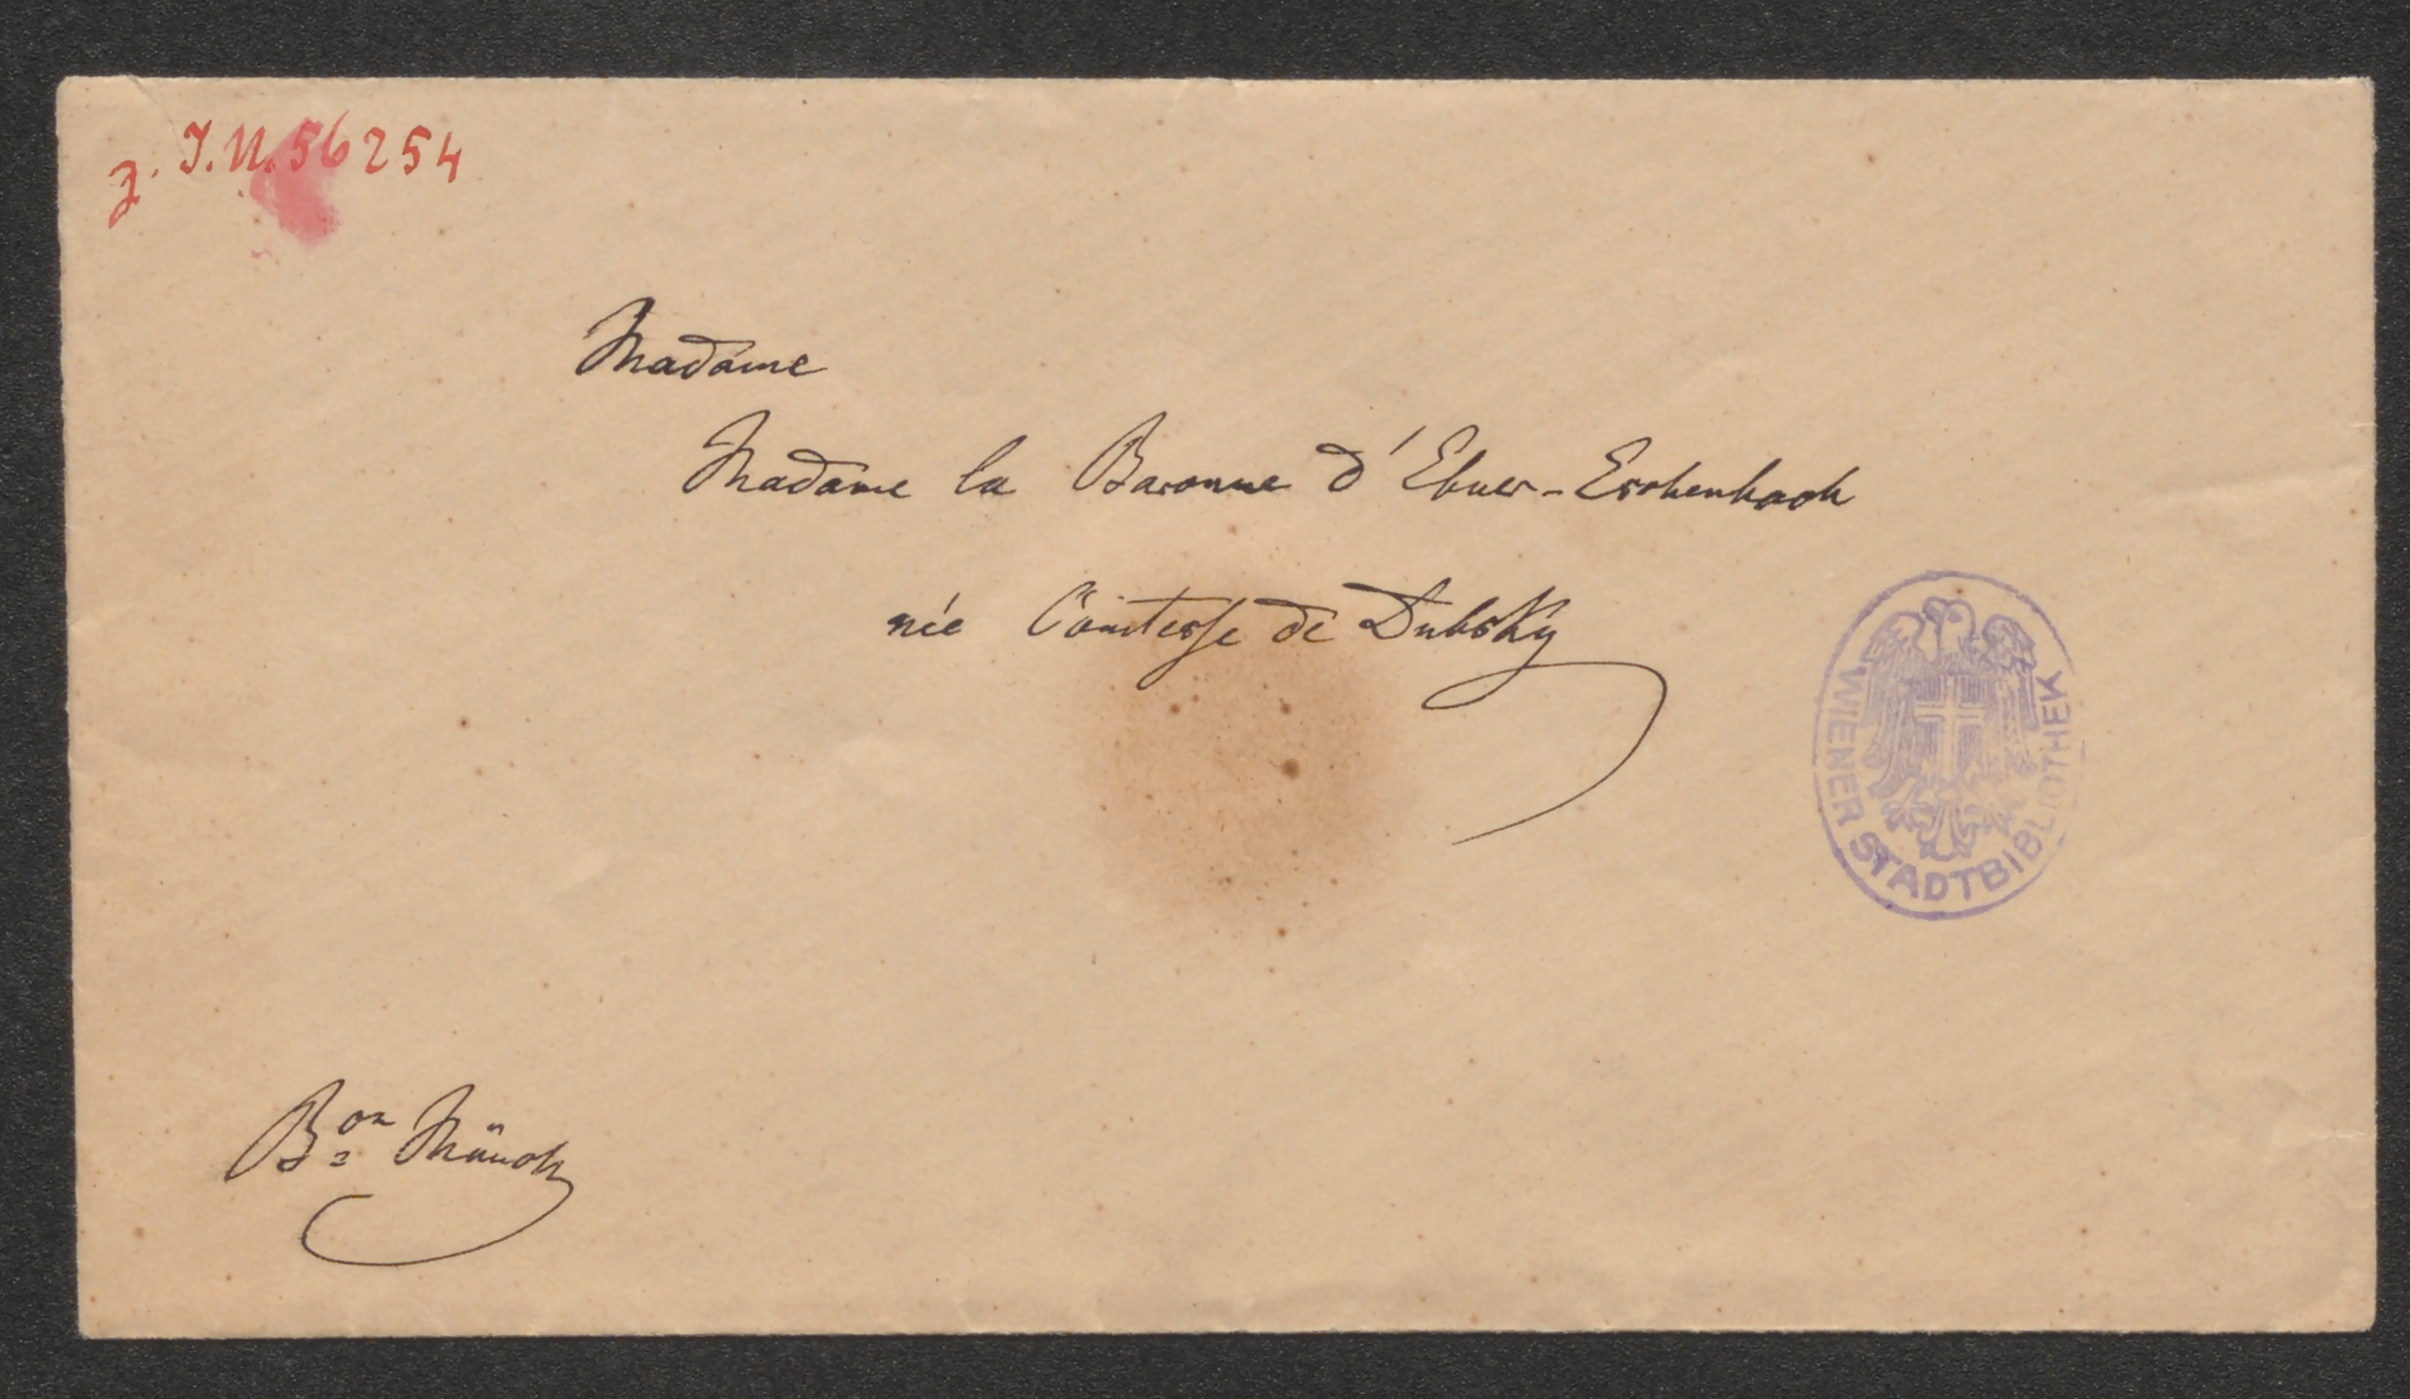 z. I.N. 56254
Madame
Madame la Baronne d'Ebner-Eschenbach
née Comtesse de Dubsky
WIENER STADTBIBLIOTHEK
Bon Münch